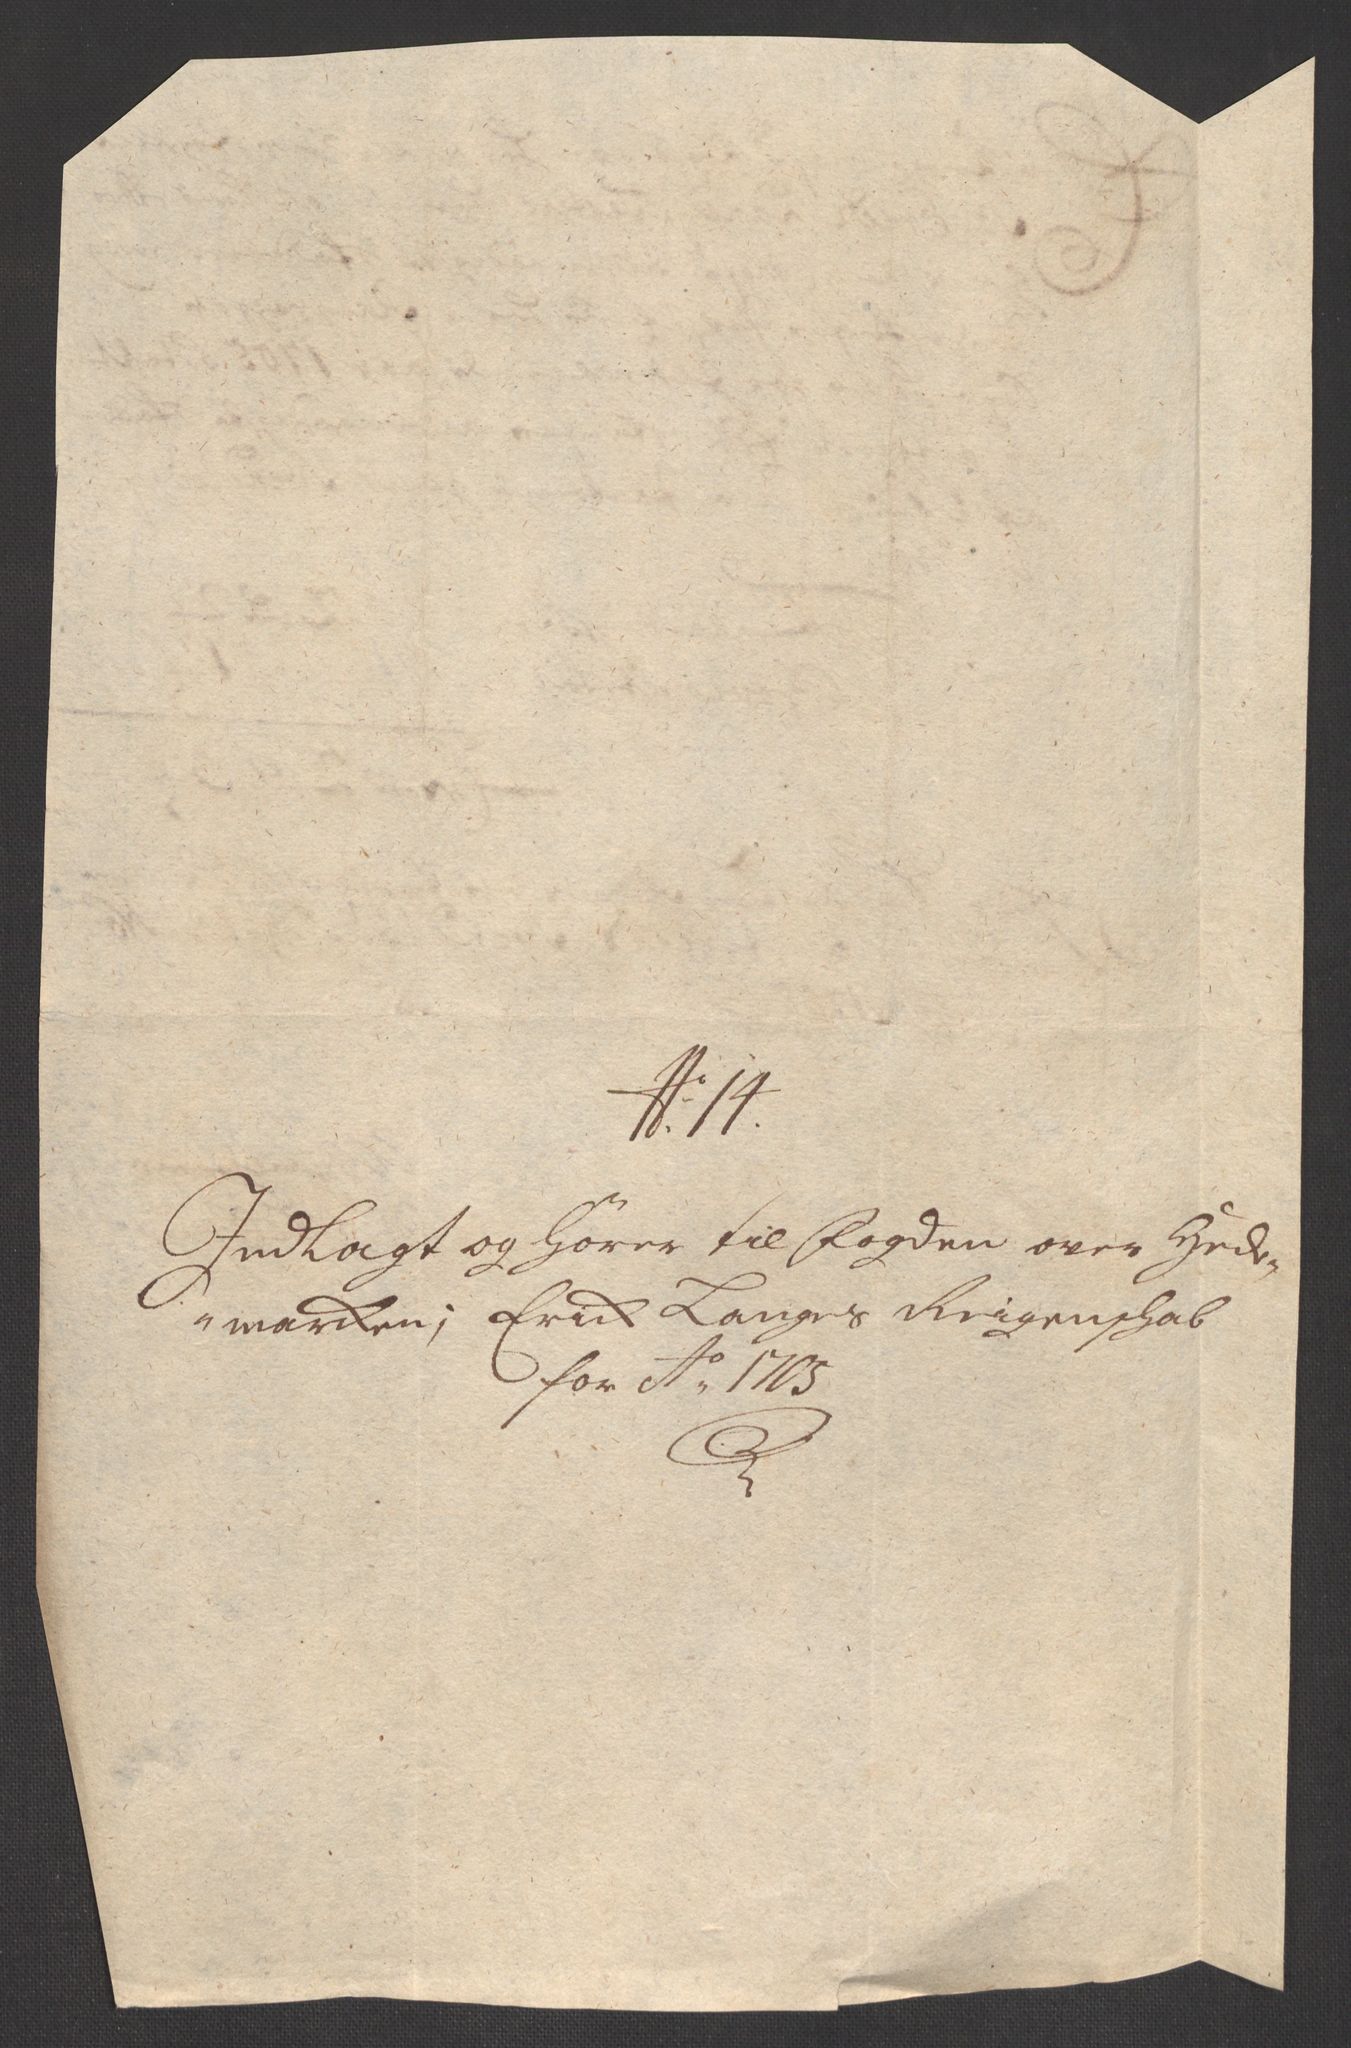 No. 14.
Indlagt og hörer til fogden over Hede„
„marcken; Erick Langes Reigenschab
for Ao. 1705